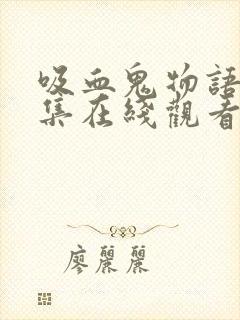 吸血鬼物語
集在綫觀看
廖麗麗